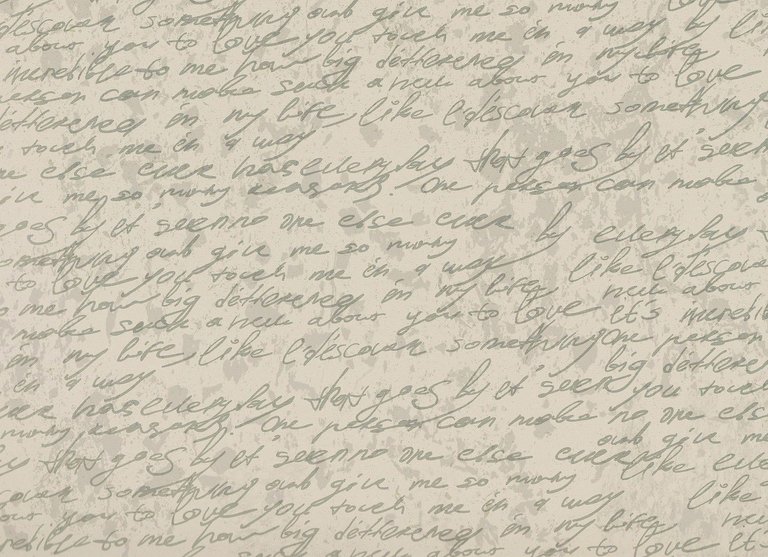 discover something and give me so many
about you to love you touch me in a way by
incredible to me how big differened in my life
person can make such a new about you to love
differened in my life, like I discover something
touch me in a way
one else ever has every day that goes by it' seem
give me so many reasons. One person can make
goes by it' seem no one else ever by every day
something and give me so many
to love you touch me in a way like I discover
me how big differened in my life new about
make such a new about you to love it's incredible
in my life, like I discover something One person
in a way big differened
ever has every day that goes by it' seem you touch
many reasons. One person can make no one else
and give me
day that goes by it' seem no one else ever like
discover something and give me so many
you to love you touch me in a way like
incredible to me how big differened in my life new
such a new about you to love it's